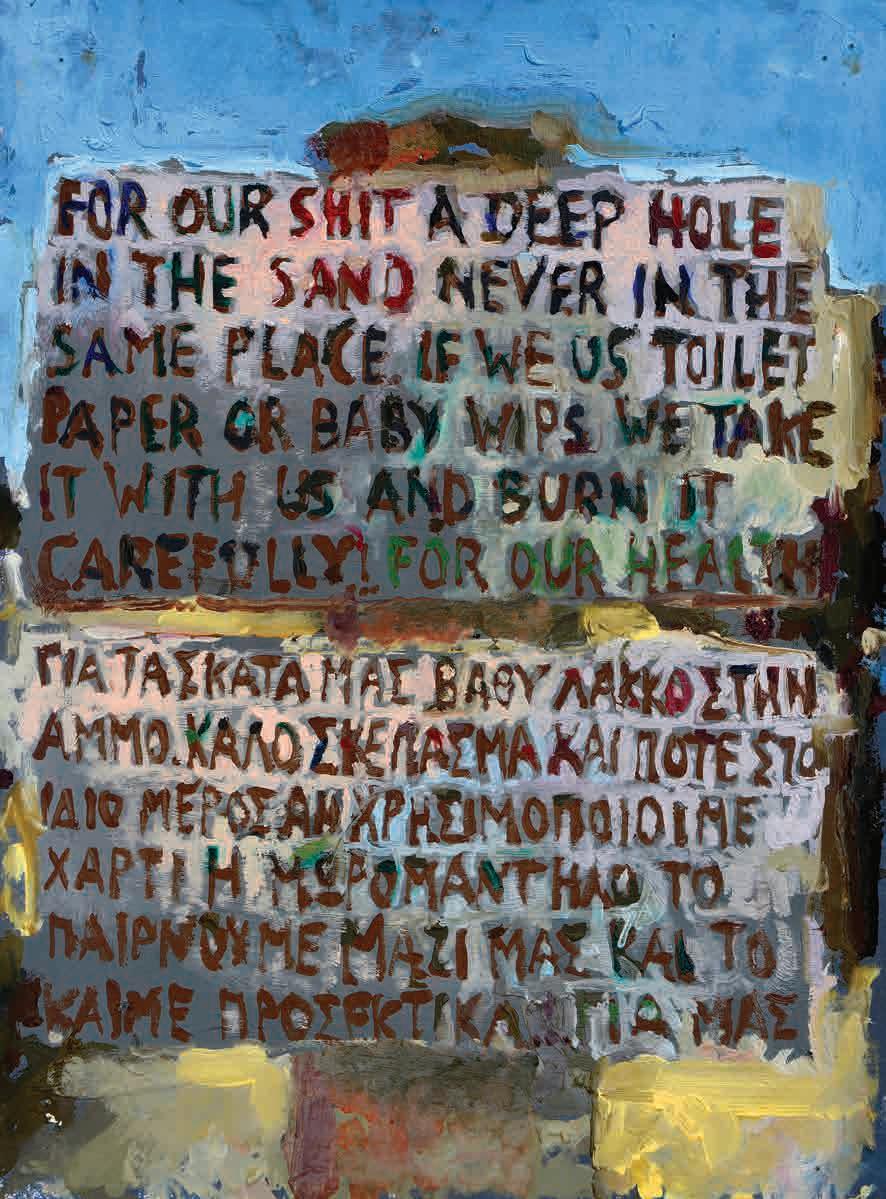 FOR OUR SHIT A DEEP HOLE
IN THE SAND NEVER IN THE
SAME PLACE. IF WE US TOILET
PAPER OR BABY WIPS WE TAKE
IT WITH US AND BURN IT
CAREFULLY! FOR OUR HEALTH
ΓΙΑ ΤΑ ΣΚΑΤΑ ΜΑΣ ΒΑΘΥ ΛΑΚΚΟ ΣΤΗΝ
ΑΜΜΟ. ΚΑΛΟ ΣΚΕΠΑΣΜΑ ΚΑΙ ΠΟΤΕ ΣΤΟ
ΙΔΙΟ ΜΕΡΟΣ ΑΝ ΧΡΗΣΙΜΟΠΟΙΟΙΜΕ
ΧΑΡΤΙ Η ΜΩΡΟΜΑΝΤΗΛΟ ΤΟ
ΠΑΙΡΝΟΥΜΕ ΜΑΖΙ ΜΑΣ ΚΑΙ ΤΟ
ΚΑΙΜΕ ΠΡΟΣΕΚΤΙΚΑ... ΓΙΑ ΜΑΣ